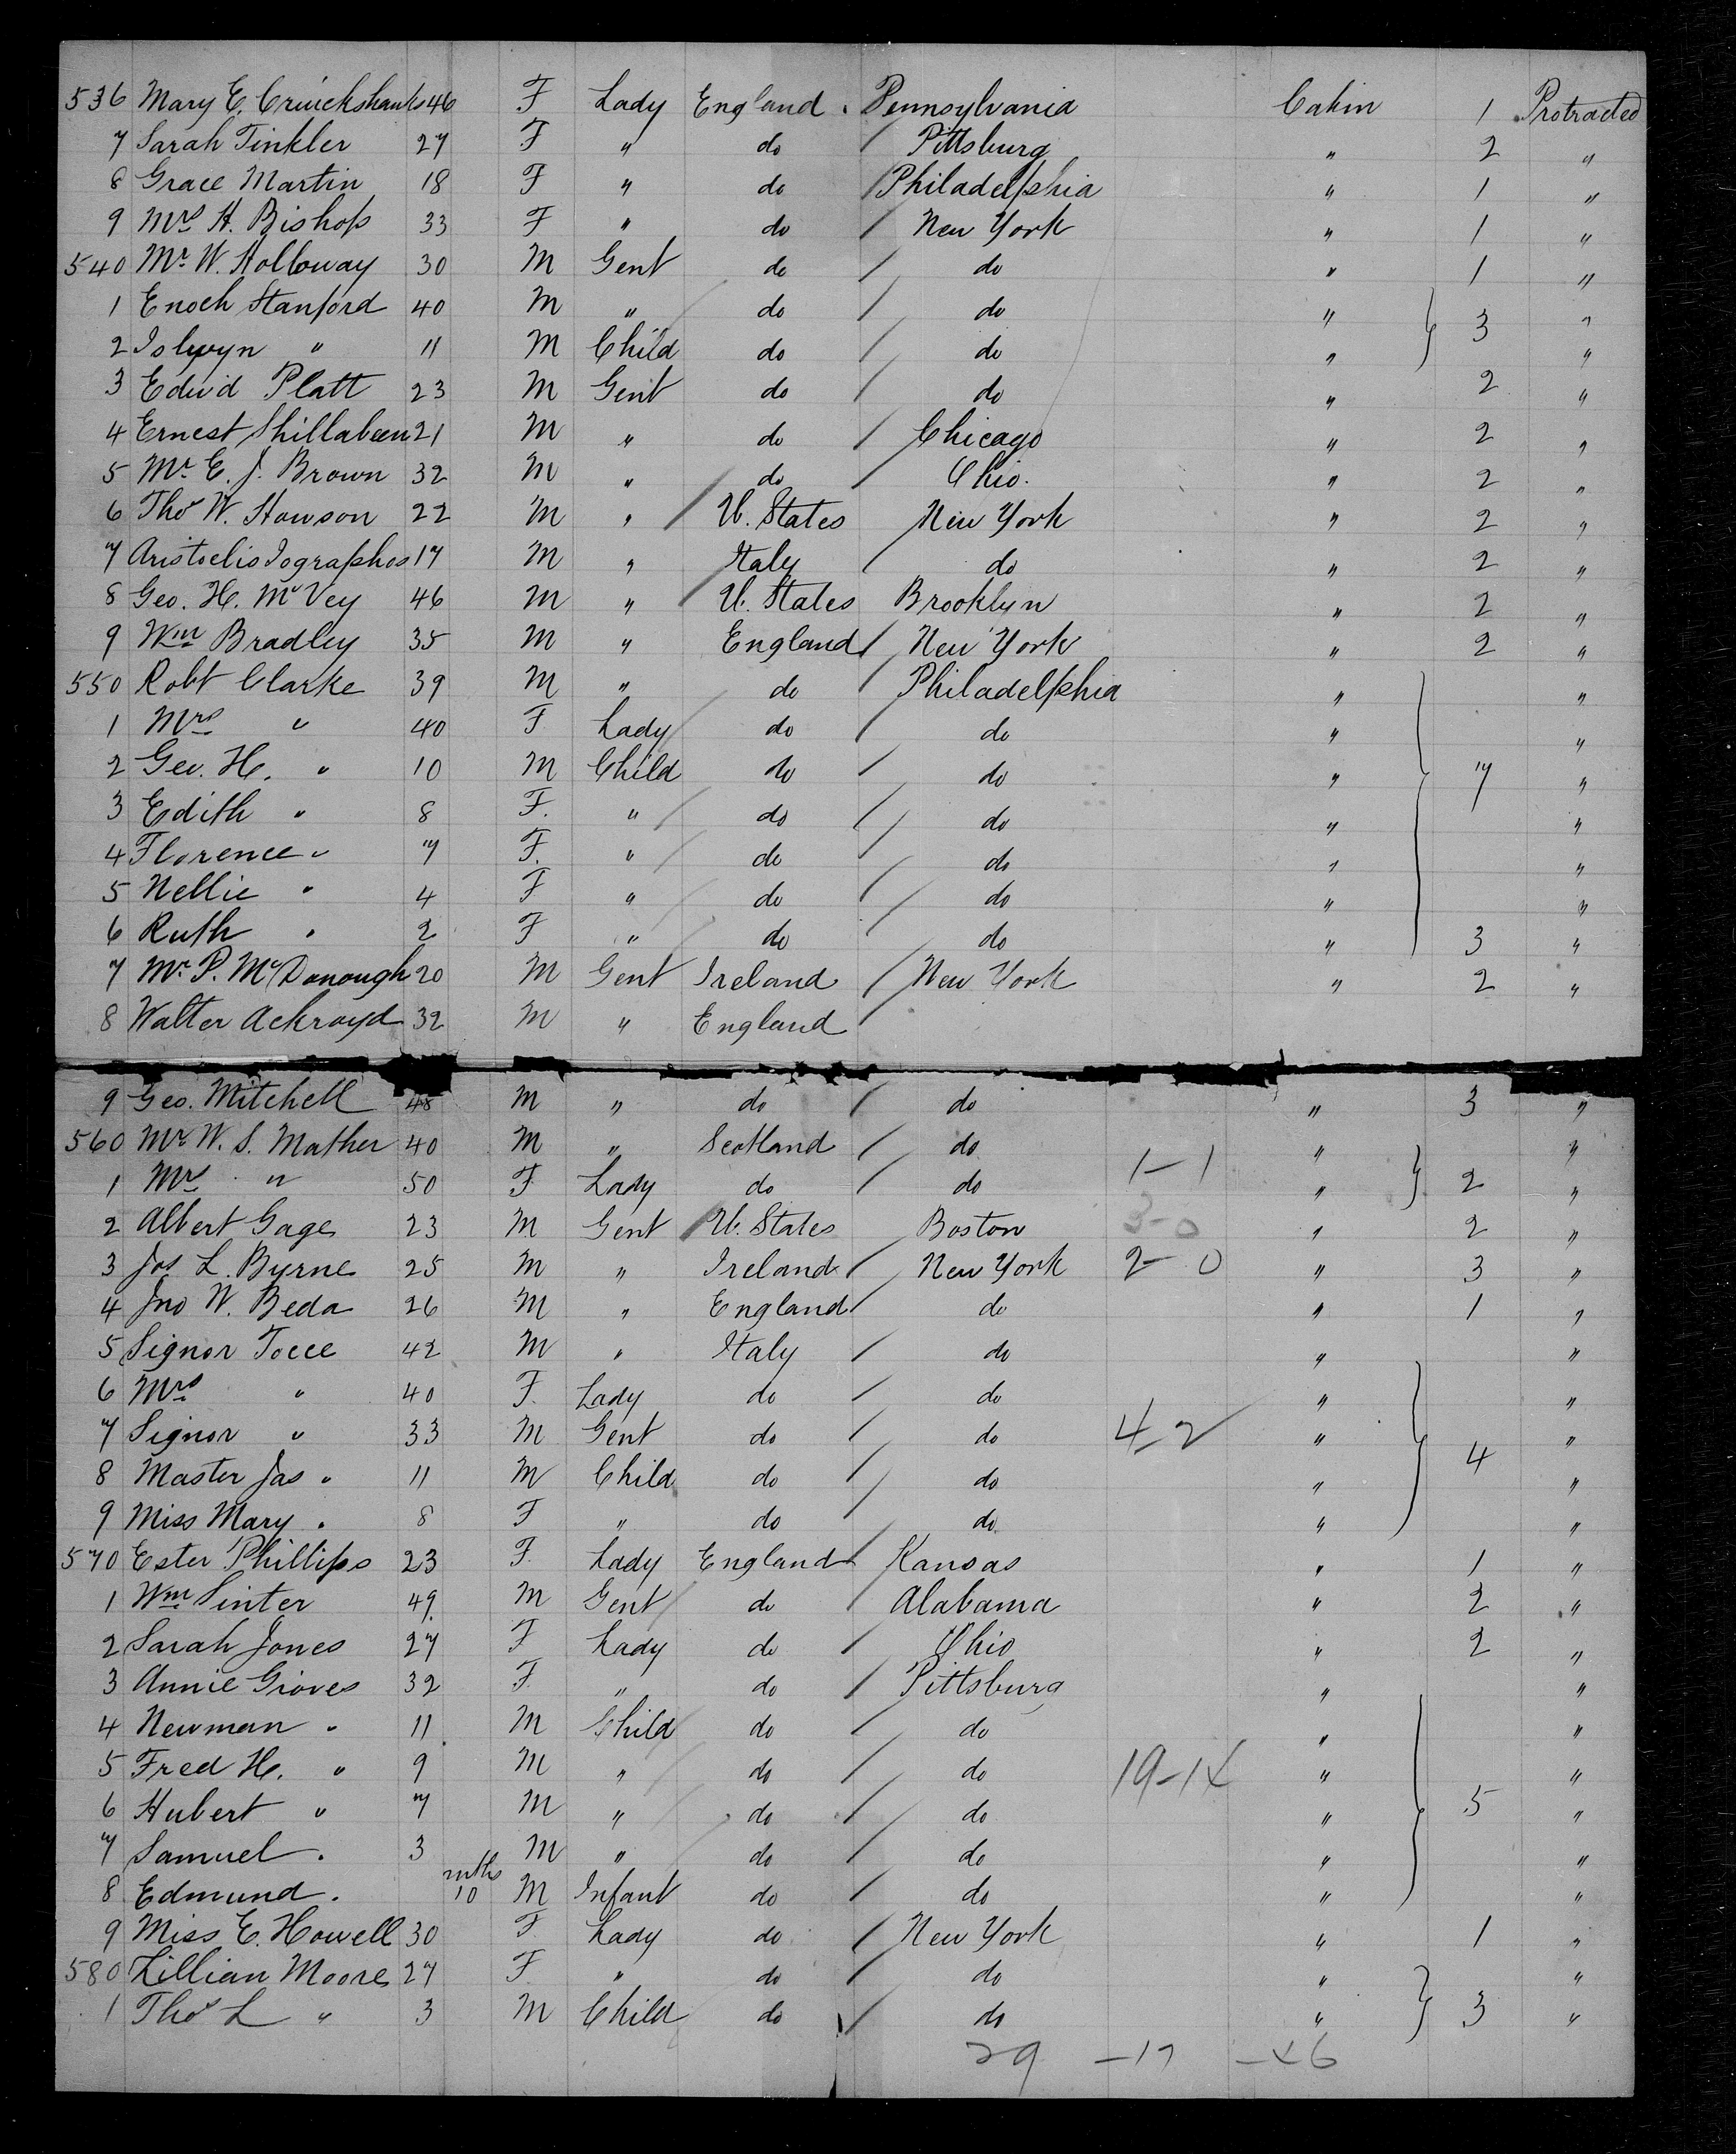 536 Mary E. Cruickshank 46 F Lady England Pennsylvania Cabin 1 Protracted
7 Sarah Tinkler 27 F " do Pittsburg " 2 "
8 Grace Martin 18 F " do Philadelphia " 1 "
9 Mrs H. Bishop 33 F " do New York " 1 "
540 Mr W. Holloway 30 M Gent do do " 1 "
1 Enoch Stanford 40 M " do do " 3 "
2 Islwyn " 11 M Child do do " "
3 Edwd Platt 23 M Gent do do " 2 "
4 Ernest Shillabeen 21 M " do Chicago " 2 "
5 Mr E. J. Brown 32 M " do Ohio. " 2 "
6 Thos W. Howson 22 M " U. States New York " 2 "
7 Aristoelis Iographos 17 M " Italy do " 2 "
8 Geo. H. McVey 46 M " U. States Brooklyn " 2 "
9 Wm Bradley 35 M " England New York " 2 "
550 Robt Clarke 39 M " do Philadelphia " "
1 Mrs " 40 F Lady do do " "
2 Geo. H. " 10 M Child do do " 7 "
3 Edith " 8 F. " do do " "
4 Florence " 7 F. " do do " "
5 Nellie " 4 F " do do " "
6 Ruth " 2 F " do do " 3 "
7 Mr P. McDonough 20 M Gent Ireland New York " 2 "
8 Walter Ackroyd 32 M " England
9 Geo. Mitchell 48 M " do do " 3 "
560 Mr W. S. Mather 40 M " Scotland do " "
1 Mrs " 50 F Lady do do 1-1 " 2 "
2 Albert Gage 23 M Gent U. States Boston 3-0 " 2 "
3 Jos L. Byrne 25 M " Ireland New York 2-0 " 3 "
4 Jno W. Beda 26 M " England do " 1 "
5 Signor Tocce 42 M " Italy do " "
6 Mrs " 40 F. Lady do do " "
7 Signor " 33 M Gent do do 4-2 " "
8 Master Jas " 11 M Child do do " 4 "
9 Miss Mary " 8 F " do do " "
570 Ester Phillips 23 F. Lady England Kansas " 1 "
1 Wm Sinter 49 M Gent do Alabama " 2 "
2 Sarah Jones 27 F Lady do Ohio " 2 "
3 Annie Groves 32 F. " do Pittsburg " "
4 Newman " 11 M Child do do " "
5 Fred H. " 9 M " do do 19-14 " "
6 Hubert " 7 M " do do " 5 "
7 Samuel " 3 M " do do " "
8 Edmund " mths 10 M Infant do do " "
9 Miss E. Howell 30 F Lady do New York " 1 "
580 Lillian Moore 27 F. " do do " "
1 Thos L " 3 M Child do do " 3 "
29 -17 -46